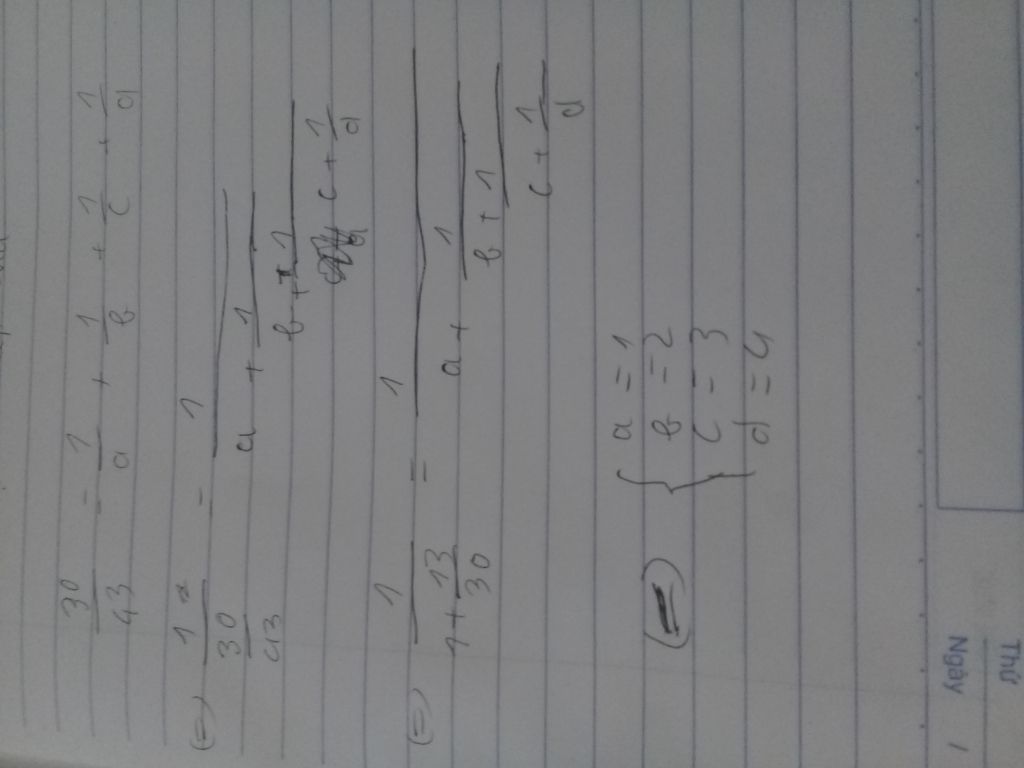 30/43 = 1/a + 1/b + 1/c + 1/d
(=) 1/(30/43) = 1/(a + 1/(b + 1/(c + 1/d)))
(=) 1/(1 + 13/30) = 1/(a + 1/(b + 1/(c + 1/d)))
(=) { a = 1
b = 2
c = 3
d = 4
Thứ
Ngày /